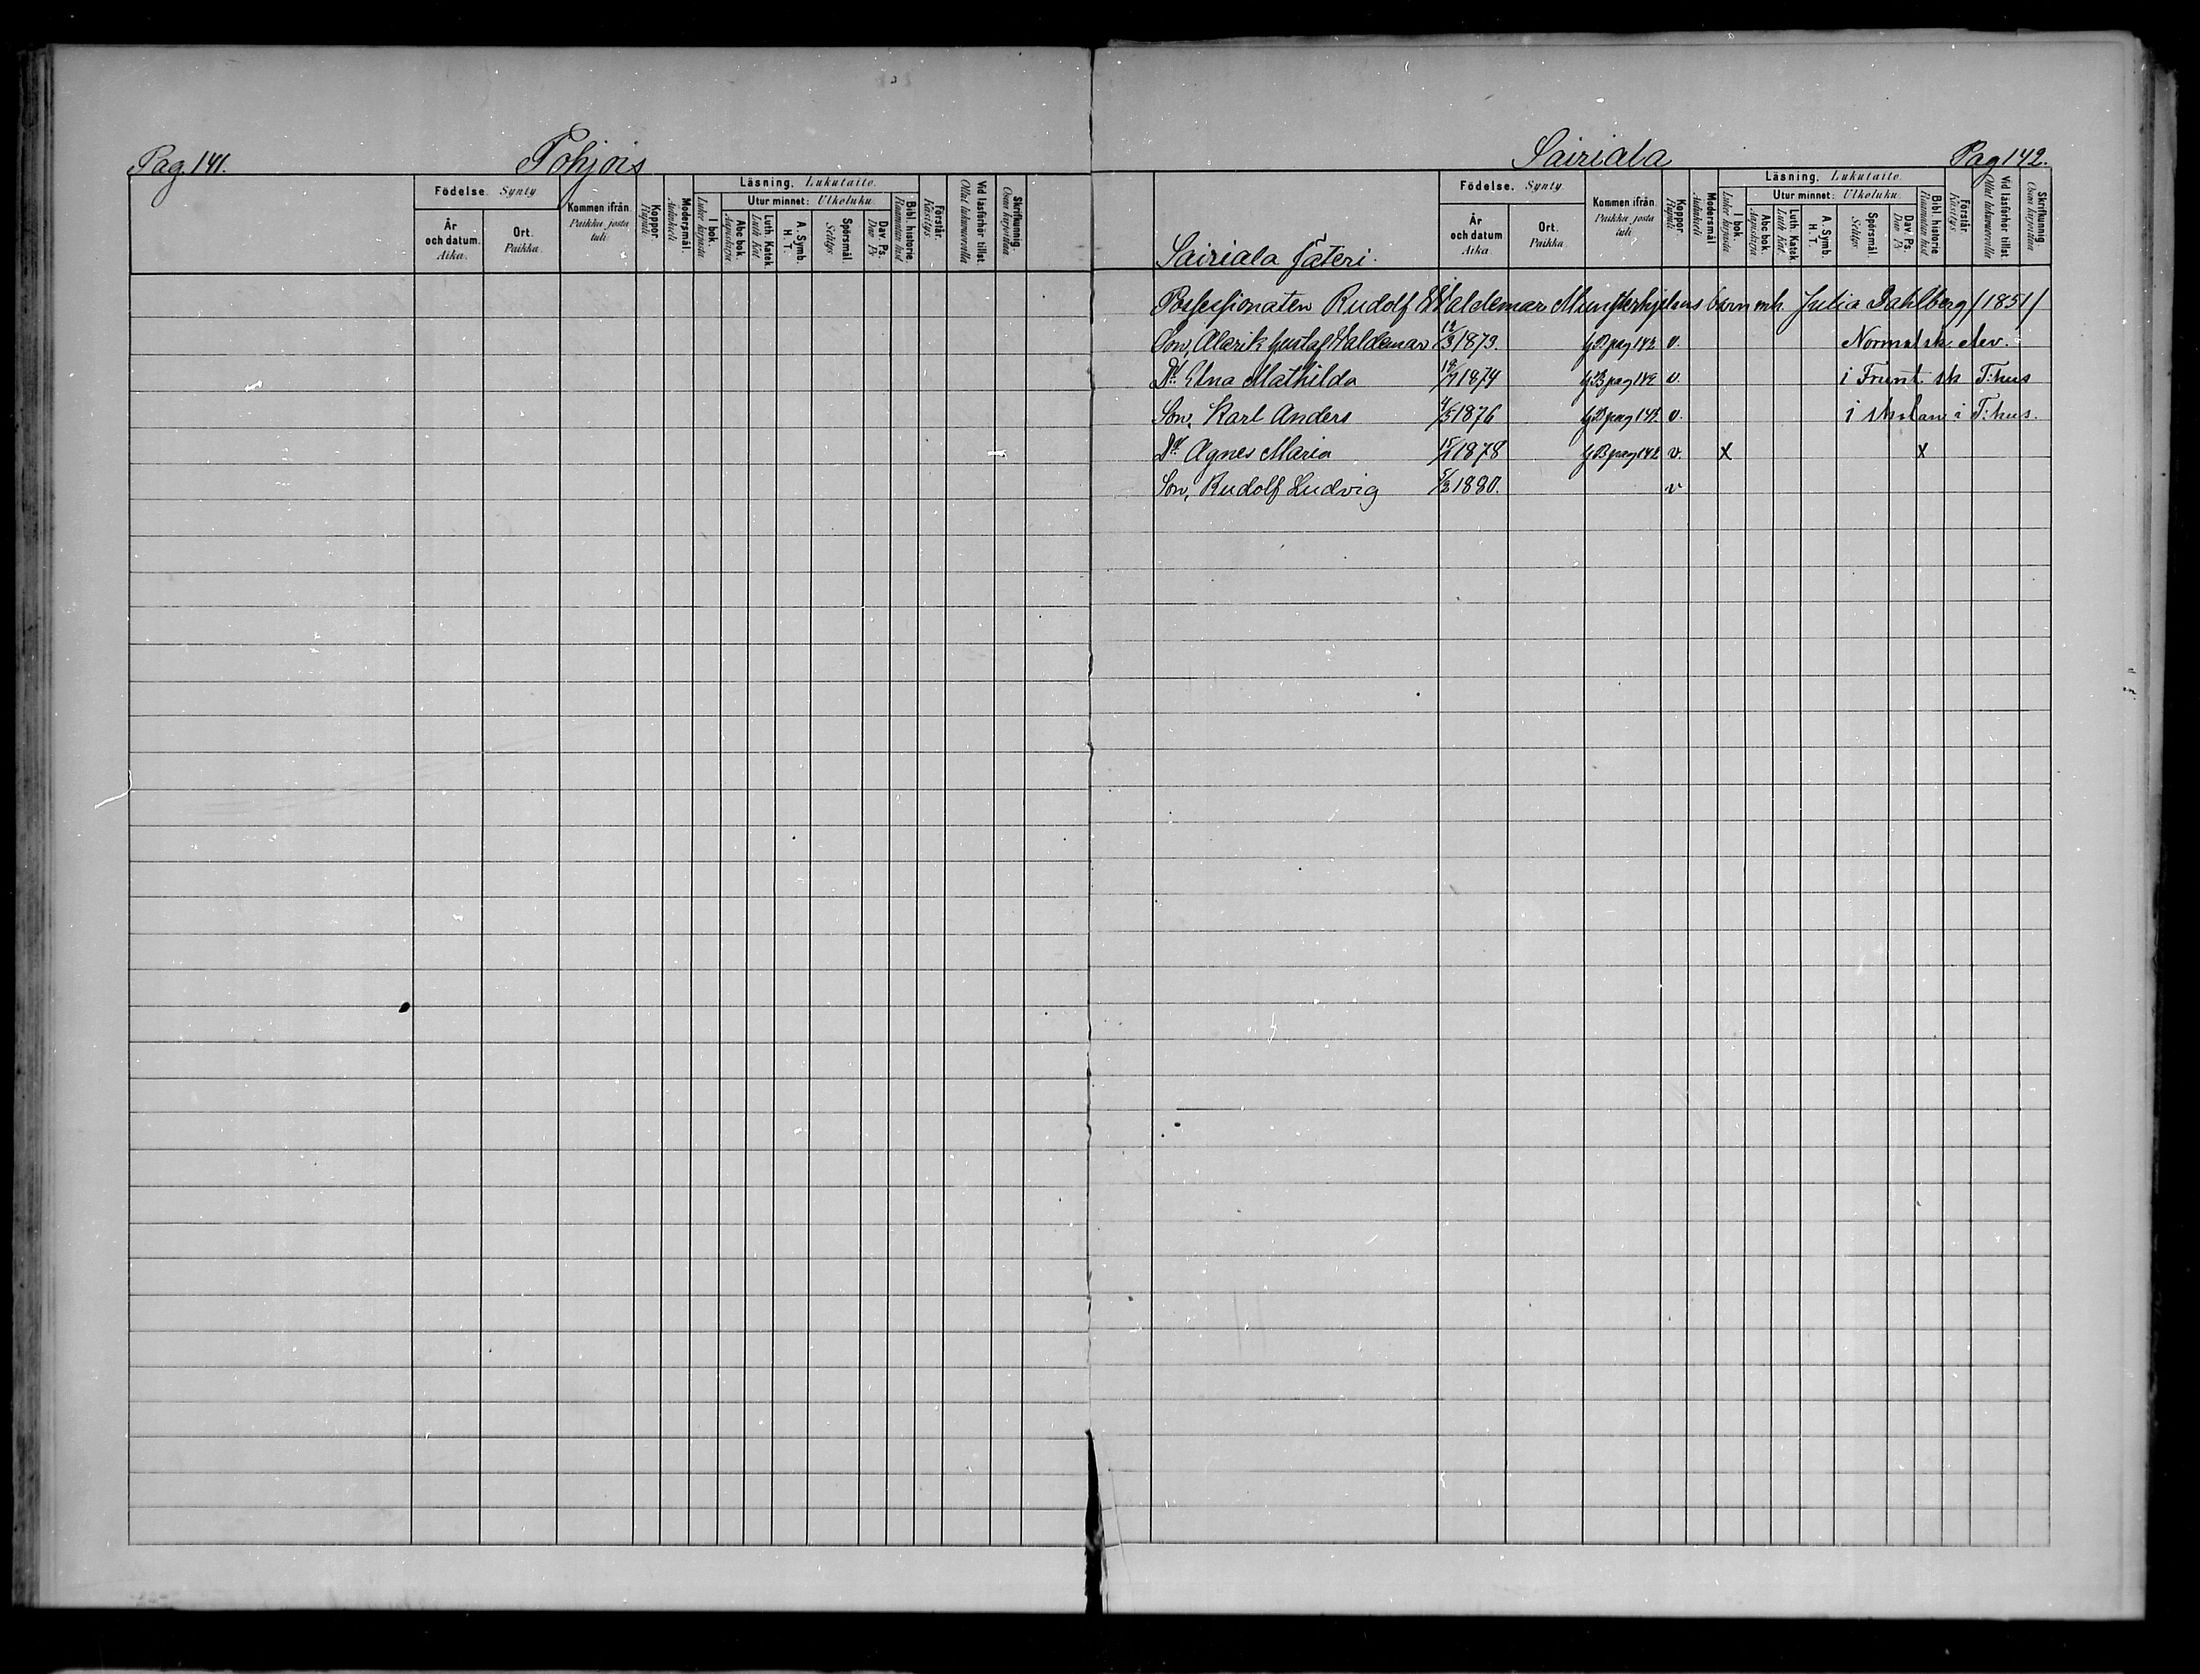 Pag. 141. Pohjois
Födelse. Synty
År och datum. Aika.
Ort. Paikka.
Kommen ifrån. Paikka josta tuli
Koppor. Rupuli
Modersmål. Äidinkieli
Läsning. Lukutaito.
I bok. Lukee kirjasta
Utur minnet: Ulkoluku.
Abc bok. Aapiskirja.
Luth. Katek. Luth. Kat.
A. Symb. H. T.
Spörsmål. Selitys
Dav. Ps. Dav. Ps.
Bibl. historie Raamatun hist.
Förstår. Käsitys.
Vid läsförhör tillst. Ollut lukuvuorolla
Skrifkunnig. Osaa kirjoittaa
Sairiala Pag 142.
Sairiala Säteri.
Födelse. Synty.
År och datum Aika
Ort. Paikka.
Kommen ifrån. Paikka josta tuli
Koppor. Rupuli
Modersmål Äidinkieli
Läsning. Lukutaito.
I bok. Lukee kirjasta
Utur minnet: Ulkoluku.
Abc bok. Aapiskirja
Luth. Katek. Luth. Kat.
A. Symb. H. T.
Spörsmål Selitys
Dav. Ps. Dav. Ps.
Bibl. historie Raamatun hist
Förstår. Käsitys.
Vid läsförhör tillst. Ollut lukuvuorolla
Skrifkunnig. Osaa kirjoittaa
Possessionaten Rudolf Waldemar Munsterhjelms barn mh. Julia Dahlberg /1851/
Son, Alarik Gustaf Waldemar 12/3 1873. GB pag 142 v. Normalsk. elev.
Dr Elna Mathilda 1874 GB pag 142 v. i Frunt. sk T:hus
Son, Karl Anders 4/5 1876 GB pag 142. v. i skolan i T:hus.
Dr Agnes Maria 1878 GB pag 142 v. x x
Son, Rudolf Ludvig 5/3 1880. v